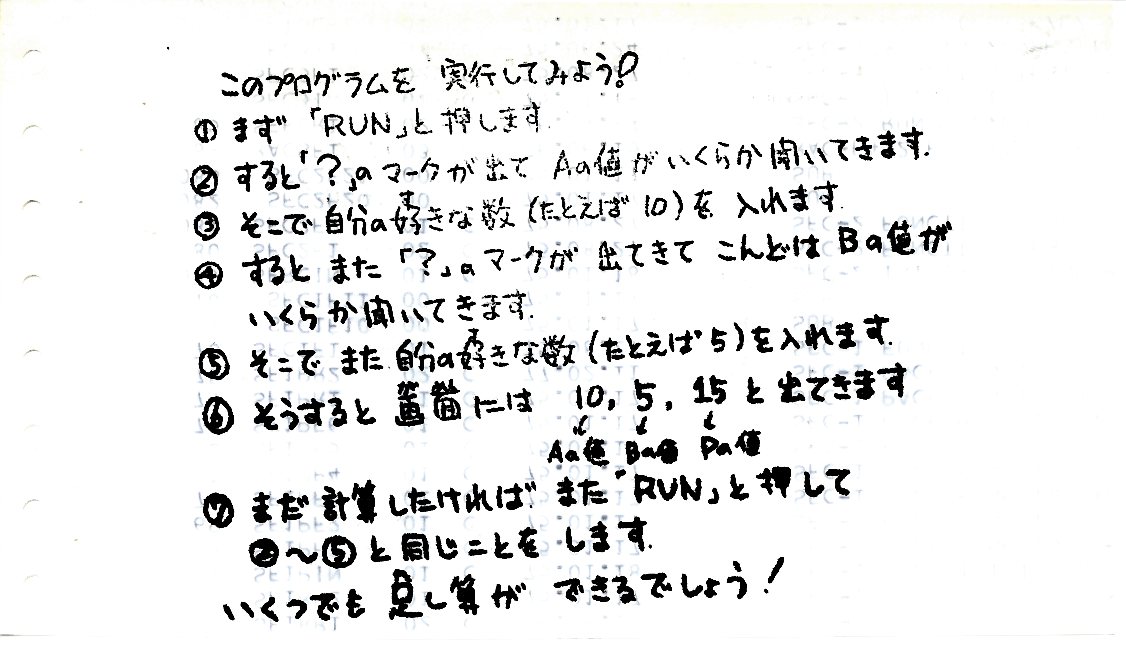 このプログラムを 実行してみよう!
① まず 「RUN」と押します.
② すると「?」のマークが出て Aの値がいくらか聞いてきます.
③ そこで自分の好きな数(たとえば 10)を 入れます.
④ すると また 「?」のマークが 出てきて こんどは Bの値が
いくらか聞いてきます.
⑤ そこで また 自分の好きな数(たとえば 5)を入れます.
⑥ そうすると 画面には 10, 5, 15 と出てきます
Aの値 Bの値 Dの値
⑦ まだ 計算したければ また「RUN」と押して
②〜⑤と同じことを します.
いくつでも 足し算が できるでしょう!